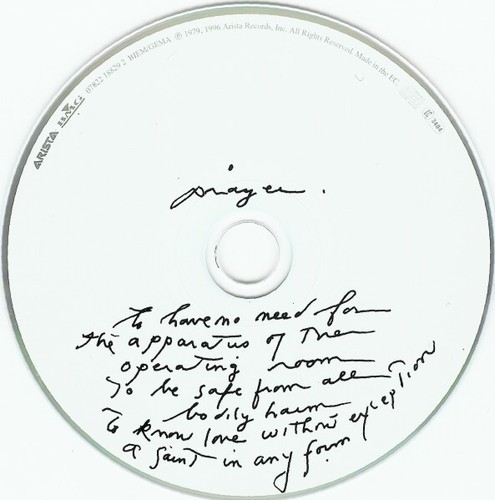 ARISTA BMG 07822 18829 2 BIEM/GEMA ℗ 1979, 1996 Arista Records, Inc. All Rights Reserved. Made in the EC
prayer.
to have no need for
the apparatus of the
operating room
To be safe from all
bodily harm
To know love without exception
a saint in any form